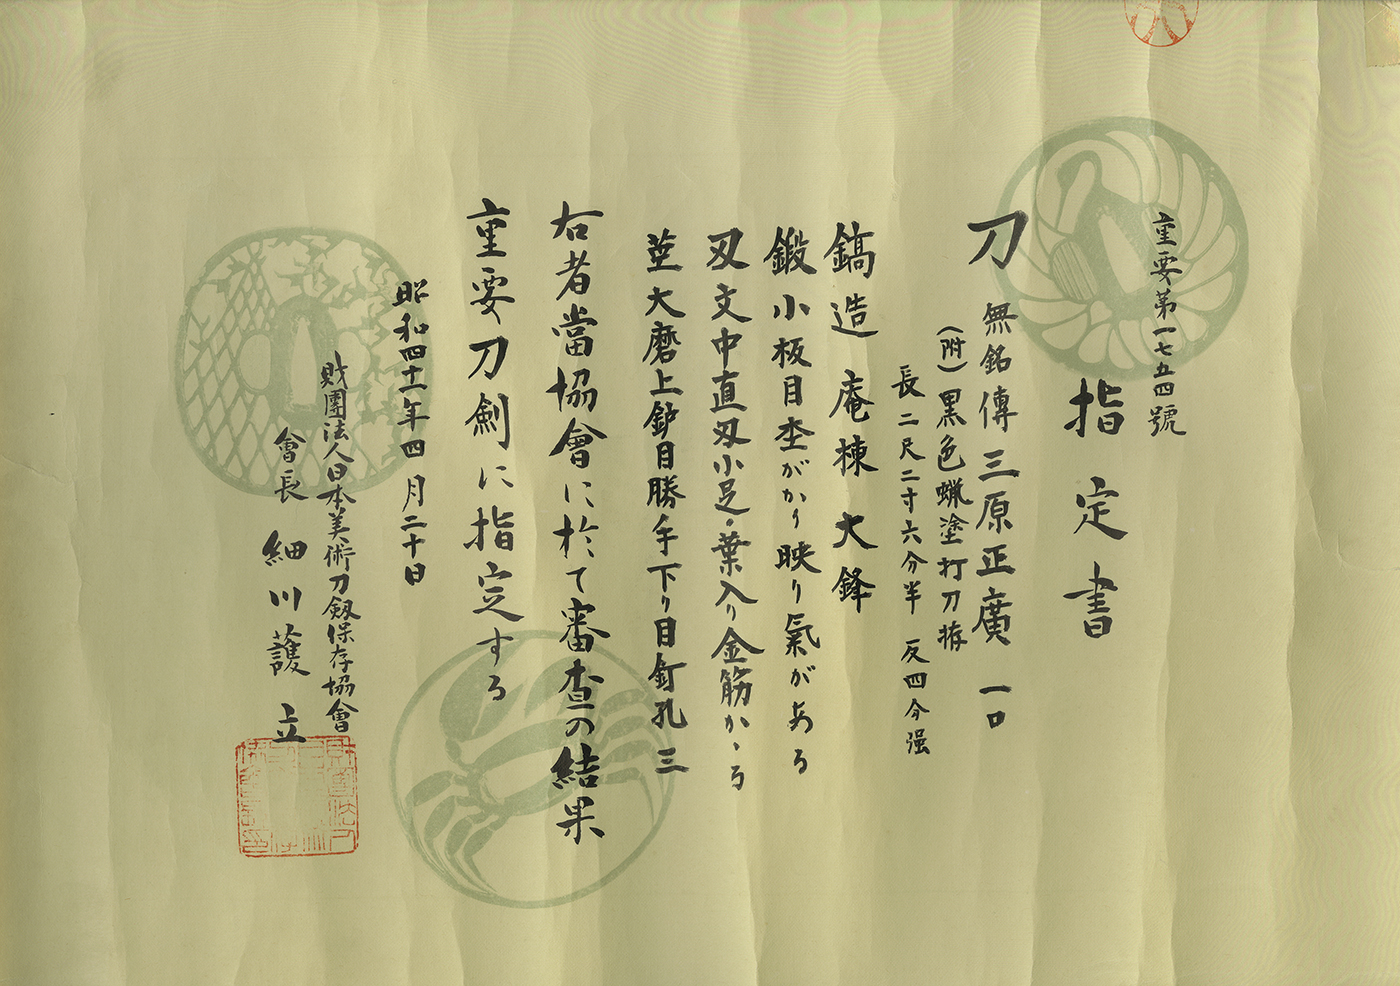 重要第一七五四號
指定書
刀 無銘傳三原正廣 一口
(附)黒色蝋塗打刀拵
長二尺二寸六分半 反四分强
鎬造 庵棟 大鋒
鍛小板目杢がかり映り氣がある
刃文中直刃小足・葉入り金筋かゝる
茎大磨上鈩目勝手下り目釘孔三
右者當協會に於て審査の結果
重要刀劍に指定する
昭和四十一年四月二十日
財團法人日本美術刀劔保存協會
會長 細川護立